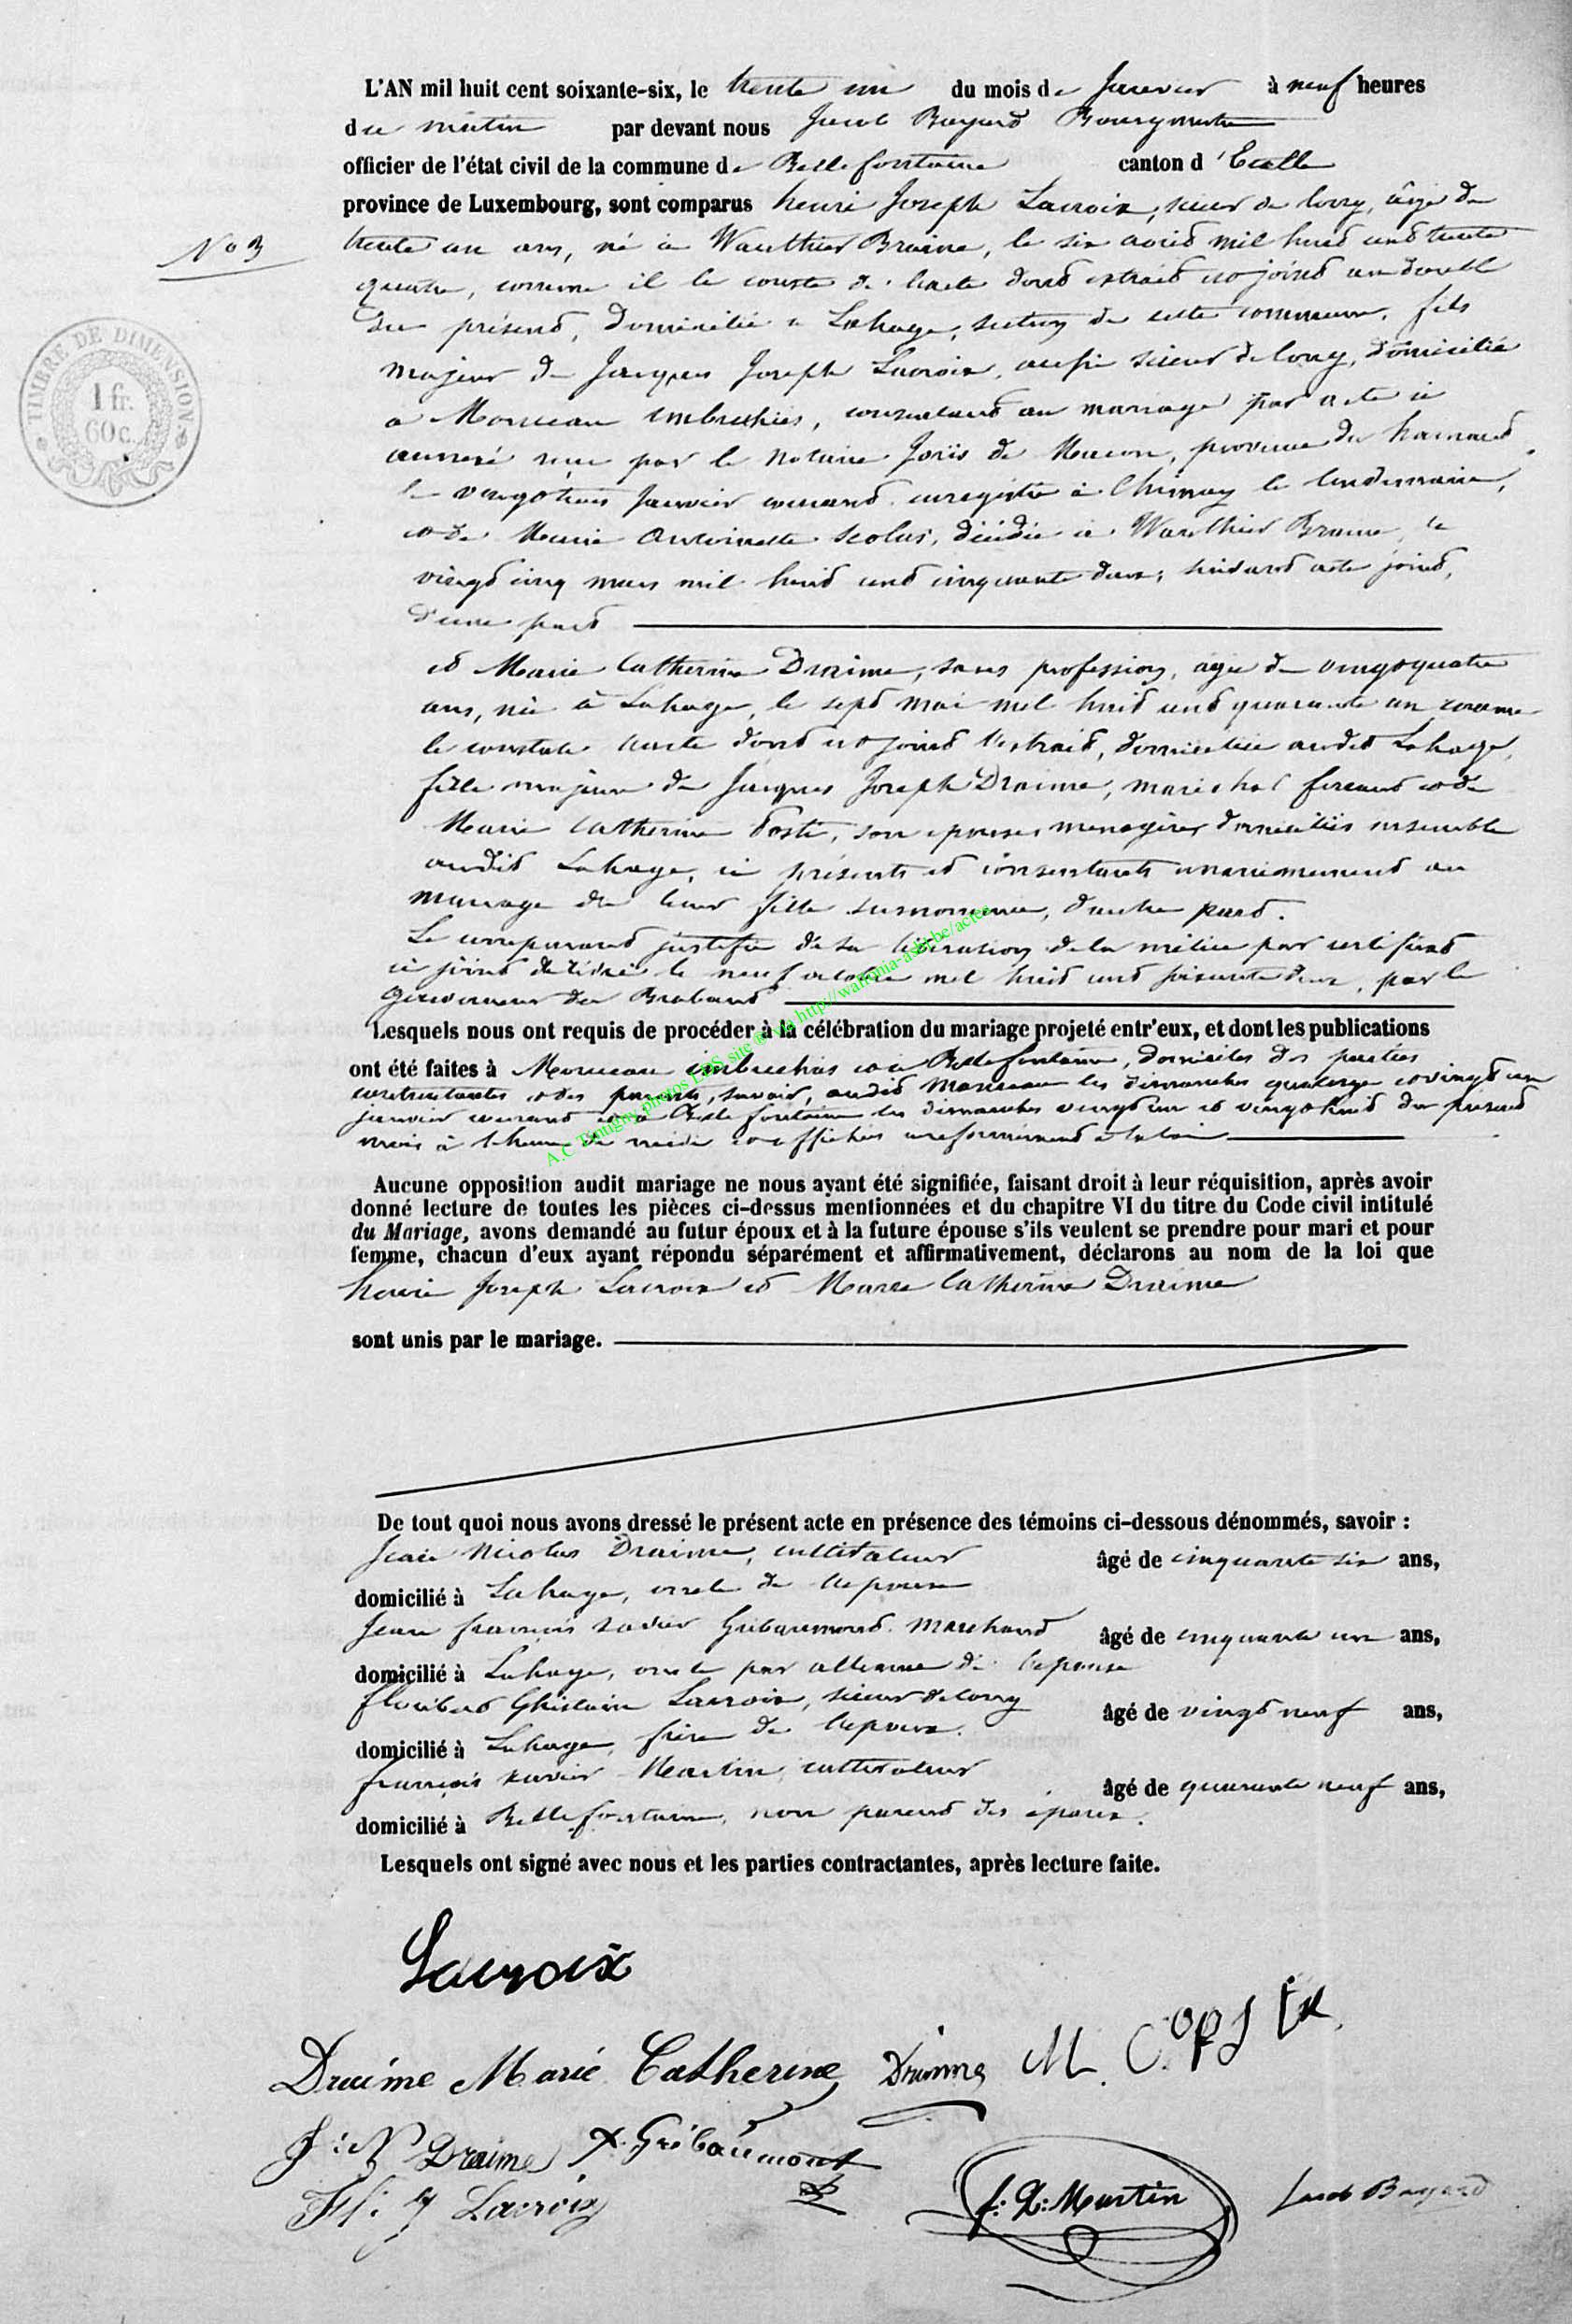 L'AN mil huit cent soixante-six, le trente un du mois de Janvier à neuf heures
du matin par devant nous Jacob Bayard Bourgmestre
officier de l'état civil de la commune de Bellefontaine canton d'Etalle
province de Luxembourg, sont comparus henri Joseph Lacroix, scieur de long, âgé de
No 3
trente un ans, né à Wauthier Braine, le six avril mil huit cent trente
quatre, comme il le conste de l'acte dont extrait est joint au double
du présent, domicilié à Lahage, section de cette commune, fils
majeur de Jacques Joseph Lacroix, aussi scieur de long, domicilié
a Monceau imbrechies, consentant au mariage par acte ci
annexé reçu par le notaire Joris de Macon, province du hainaut
le vingt Janvier courant enregistré à Chimay le lendemain,
et de Marie Antoinette Scolas, décédée à Wauthier Braine, le
vingt cinq mars mil huit cent cinquante deux, suivant acte joint,
d'une part
et Marie Catherine Draime, sans profession, âgée de vingt quatre
ans, née à Lahage, le sept mai mil huit cent quarante un comme
le constate l'acte dont est joint l'extrait, domiciliée audit Lahage,
fille majeure de Jacques Joseph Draime, maréchal ferrant et de
Marie Catherine son epouse menagère domiciliés ensemble
audit Lahage, ci présents et consentants au
mariage de leur fille surnommée, d'autre part.
Le comparant justifie de sa libération de la milice par certificat
ci joint délivré le neuf octobre mil huit cent soixante deux, par le
Gouverneur du Brabant
TIMBRE DE DIMENSION
1 fr.
60 c.
Lesquels nous ont requis de procéder à la célébration du mariage projeté entr'eux, et dont les publications
ont été faites à Monceau imbrechies et à Bellefontaine, domiciles des parties
contractantes et des parents, savoir, audit Monceau les dimanches quatorze et vingt un
janvier courant et à Bellefontaine les dimanches vingt un et vingt huit du présent
mois à l'heure de midi et affichées conformément à la loi
A.C Tintigny photos LDS site ® via http://wallonia-asbl.be/actes
Aucune opposition audit mariage ne nous ayant été signifiée, faisant droit à leur réquisition, après avoir
donné lecture de toutes les pièces ci-dessus mentionnées et du chapitre VI du titre du Code civil intitulé
du Mariage, avons demandé au futur époux et à la future épouse s'ils veulent se prendre pour mari et pour
femme, chacun d'eux ayant répondu séparément et affirmativement, déclarons au nom de la loi que
henri Joseph Lacroix et Marie Catherine Draime
sont unis par le mariage.
De tout quoi nous avons dressé le présent acte en présence des témoins ci-dessous dénommés, savoir :
Jean Nicolas Draime, cultivateur âgé de cinquante six ans,
domicilié à Lahage, oncle de l'epouse
Jean françois xavier Gribaumont marchand âgé de cinquante un ans,
domicilié à Lahage, oncle par alliance de l'epouse
floribert Ghislain Lacroix, scieur de long âgé de vingt neuf ans,
domicilié à Lahage, frère de l'epoux.
françois xavier Martin, cultivateur âgé de quarante neuf ans,
domicilié à Bellefontaine, non parent des époux.
Lesquels ont signé avec nous et les parties contractantes, après lecture faite.
Lacroix
Draime Marie Catherine Draime M. C.
J: N Draime X. Gribaumont
Fl: g Lacroix f: X: Martin Jacob Bayard